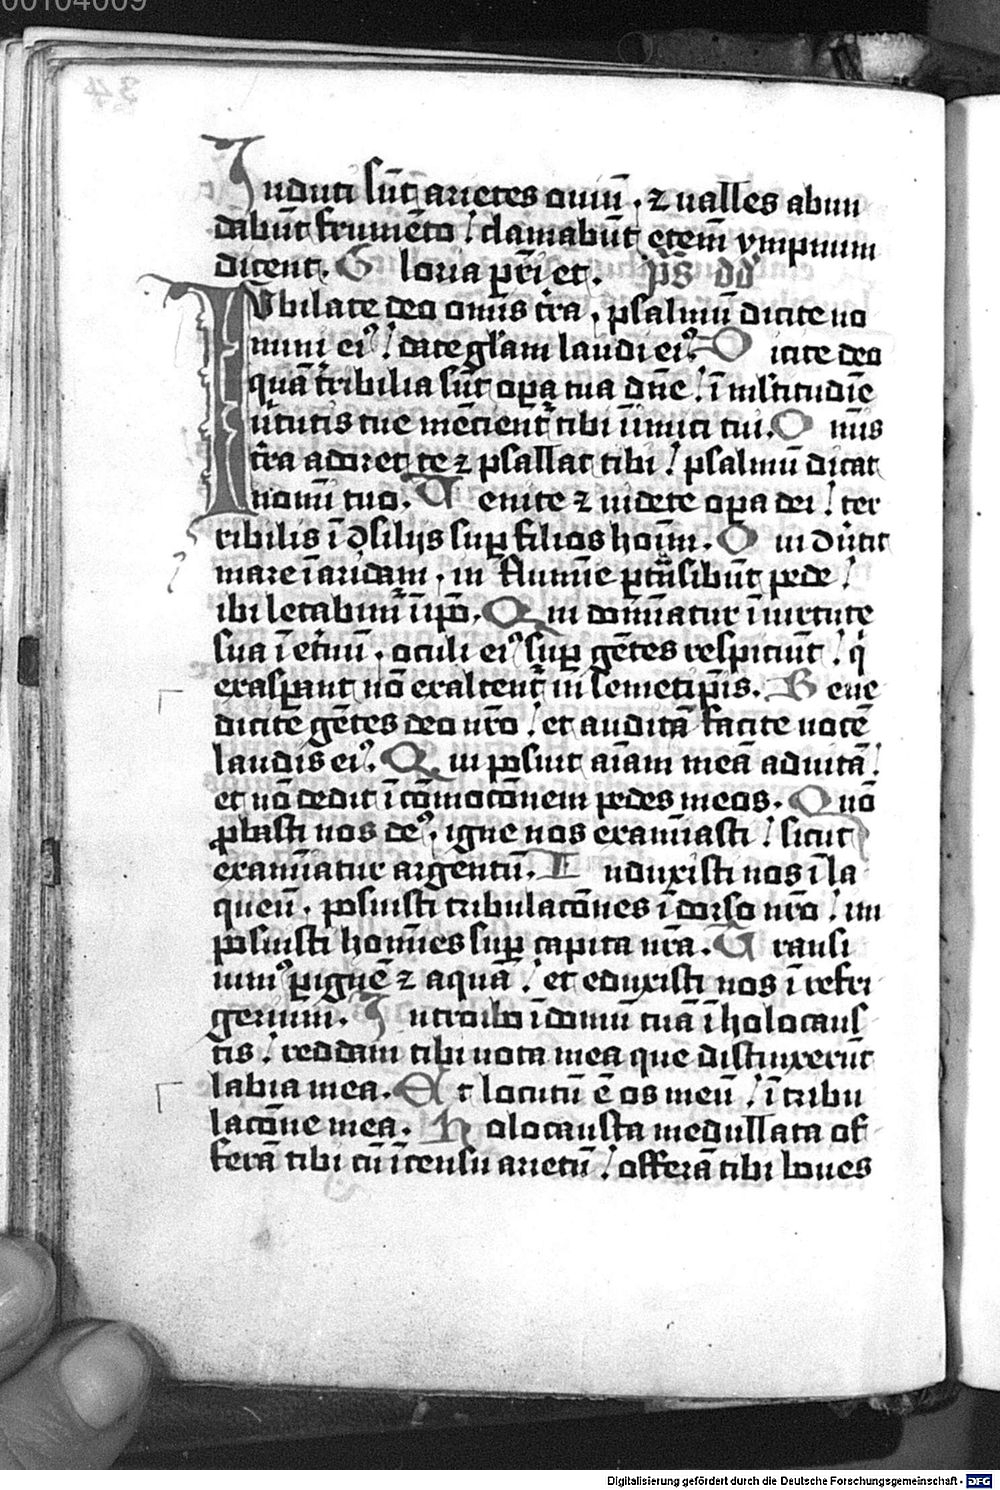 00104009
34
Induti sūt arietes ouiū . ⁊ ualles abun
dabūt frumēto ! clamabūt etem̄ ympnum
dicent. Gloria pr̄i et. ps̄ dd̄
IVbilate deo omīs t̄ra . psalmū dicite no
mini eiꝰ ! date gl̄am laudi eiꝰ. Dicite deo
quā t̄ribilia sūt oꝑa tua dn̄e ! ī ml̄titudīe
ũtutis tue mēcient̃ tibi inīmici tui. Omīs
t̄ra adoret te ⁊ psallat tibi ! psalmū dicat
nomī tuo. Uenite ⁊ uidete oꝑa dei ! ter
ribilis ī ꝯsilijs suꝑ filios hoīm. Qui ꝯũtit
mare ī aridam . in flumīe ꝑtn̄sibūt pede !
ibi letabimꝰ ī ip̄o. Qui domīatur ī uirtute
sua ī et̄nū . oculi eiꝰ suꝑ gētes respiciūt ! q̇
exasꝑant nō exaltent̃ in semetip̄is. Bene
dicite gētes deo nr̄o ! et auditā facite uocē
laudis eiꝰ. Qui posuit aīam meā aduitā !
et nō dedit ī cōmocōnem pedes meos. Quō
ꝓbasti nos deꝰ . igne nos examīasti ! sicut
examīatur argentū. Induxisti nos ī la
queū . posuisti tribulacōnes ī dorso nr̄o ! im
posuisti homīes suꝑ capita nr̄a. Transi
uimꝰ ꝑ ignē ⁊ aquā ! et eduxisti nos ī refri
gerium. Introibo ī domū tuā ī holocaus
tis ! reddam tibi uota mea que distinxerūt
labia mea. Et locutū ē os meū ! ī tribu
lacōne mea. Holocausta medullata of
ferā tibi cū īcensu arietū ! offerā tibi boues
Digitalisierung gefördert durch die Deutsche Forschungsgemeinschaft - DFG